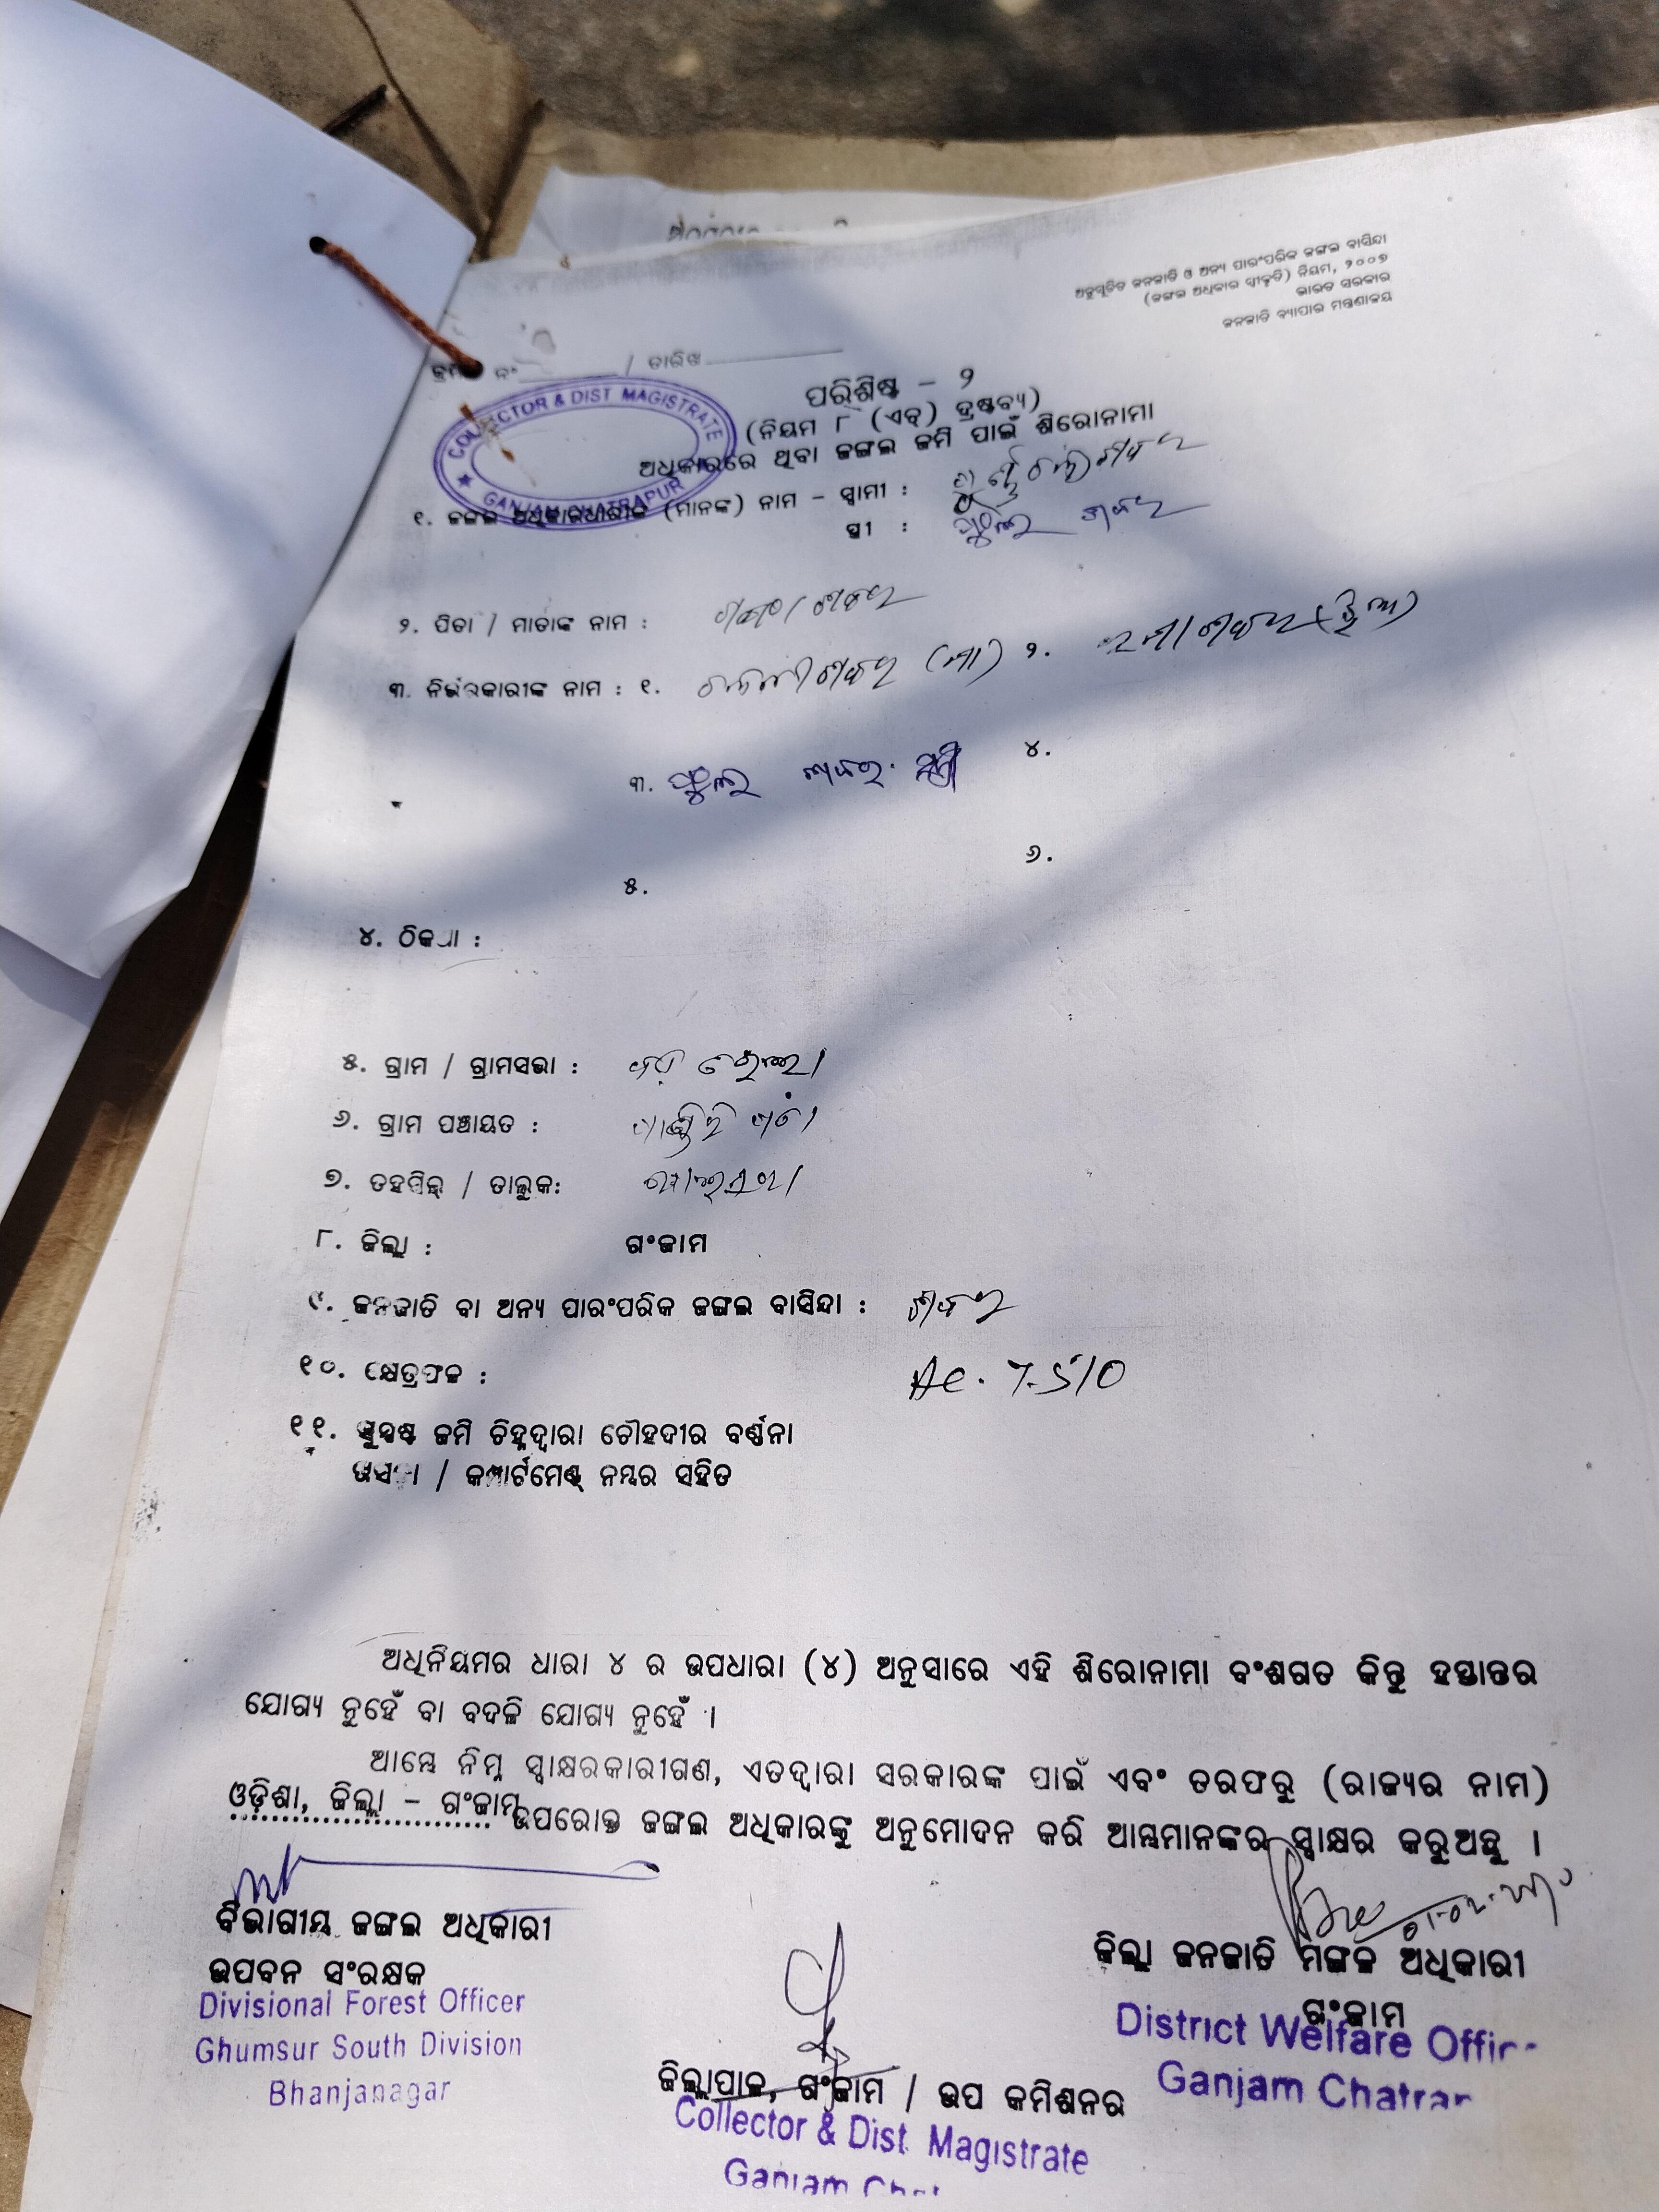 ଅନୁସୂଚିତ ଜନଜାତି ଓ ଅନ୍ୟ ପାରଂପରିକ ଜଙ୍ଗଲ ବାସିନ୍ଦା
(ଜଙ୍ଗଲ ଅଧିକାର ସ୍ୱୀକୃତି) ନିୟମ, ୨୦୦୭
ଭାରତ ସରକାର
ଜନଜାତି ବ୍ୟାପାର ମନ୍ତ୍ରଣାଳୟ
ନଂ / ତାରିଖ
COLLECTOR & DIST MAGISTRATE
GANJAM CHATRAPUR
ପରିଶିଷ୍ଟ - ୨
(ନିୟମ ୮ (ଏଚ୍) ଦ୍ରଷ୍ଟବ୍ୟ)
ଅଧିକାରରେ ଥିବା ଜଙ୍ଗଲ ଜମି ପାଇଁ ଶିରୋନାମା
୧. ଜଙ୍ଗଲ ଅଧିକାରଧାରୀଙ୍କ (ମାନଙ୍କ) ନାମ - ସ୍ୱାମୀ :
ସ୍ତ୍ରୀ : ଫୁଲୁ ଶବର
୨. ପିତା / ମାତାଙ୍କ ନାମ : ଶବର
୩. ନିର୍ଭରକାରୀଙ୍କ ନାମ : ୧. ଶବର (ମା) ୨. ଶବର (ଝିଅ)
୩. ଫୁଲୁ ଶବର ସ୍ତ୍ରୀ ୪.
୫. ୬.
୪. ଠିକଣା :
୫. ଗ୍ରାମ / ଗ୍ରାମସଭା :
୬. ଗ୍ରାମ ପଞ୍ଚାୟତ :
୭. ତହସିଲ୍ / ତାଲୁକ:
୮. ଜିଲ୍ଲା : ଗଂଜାମ
୯. ଜନଜାତି ବା ଅନ୍ୟ ପାରଂପରିକ ଜଙ୍ଗଲ ବାସିନ୍ଦା : ଶବର
୧୦. କ୍ଷେତ୍ରଫଳ : Ac. 7.510
୧୧. ସୁସ୍ପଷ୍ଟ ଜମି ଚିହ୍ନଦ୍ୱାରା ଚୌହଦୀର ବର୍ଣ୍ଣନା
ଖସଡ଼ା / କମ୍ପାର୍ଟମେଣ୍ଟ୍ ନମ୍ବର ସହିତ
ଅଧିନିୟମର ଧାରା ୪ ର ଉପଧାରା (୪) ଅନୁସାରେ ଏହି ଶିରୋନାମା ବଂଶଗତ କିନ୍ତୁ ହସ୍ତାନ୍ତର
ଯୋଗ୍ୟ ନୁହେଁ ବା ବଦଳି ଯୋଗ୍ୟ ନୁହେଁ ।
ଆମ୍ଭେ ନିମ୍ନ ସ୍ୱାକ୍ଷରକାରୀଗଣ, ଏତଦ୍ୱାରା ସରକାରଙ୍କ ପାଇଁ ଏବଂ ତରଫରୁ (ରାଜ୍ୟର ନାମ)
ଓଡ଼ିଶା, ଜିଲ୍ଲା - ଗଂଜାମ ଉପରୋକ୍ତ ଜଙ୍ଗଲ ଅଧିକାରଙ୍କୁ ଅନୁମୋଦନ କରି ଆମ୍ଭମାନଙ୍କର ସ୍ୱାକ୍ଷର କରୁଅଛୁ ।
ବିଭାଗୀୟ ଜଙ୍ଗଲ ଅଧିକାରୀ
ଉପବନ ସଂରକ୍ଷକ
Divisional Forest Officer
Ghumsur South Division
Bhanjanagar
ଜିଲ୍ଲାପାଳ, ଗଂଜାମ / ଉପ କମିଶନର
Collector & Dist. Magistrate
Ganjam
ଜିଲ୍ଲା ଜନଜାତି ମଙ୍ଗଳ ଅଧିକାରୀ
ଗଂଜାମ
District Welfare
Ganjam